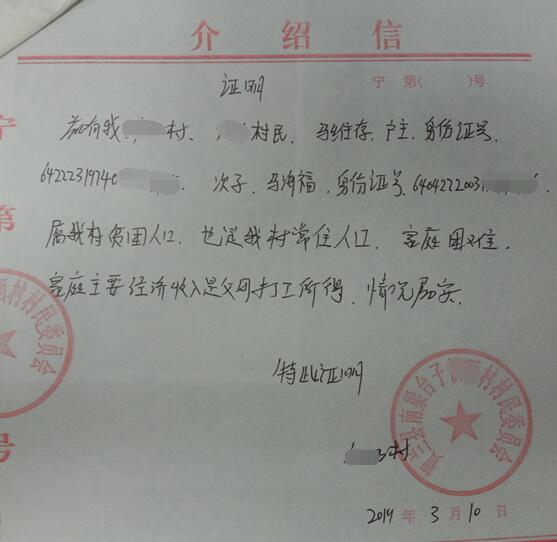 介绍信
宁 第( )号
证明
兹有我 村、 村民、马维存、户主、身份证号、
64222319740 次子、马海福、身份证号、6404222003
属我村贫困人口、也是我村常住人口、家庭困难、
家庭主要经济收入是父母打工所得、情况属实、
特此证明
村
2019年3月10日
宁
第
号
西村村民委员会
贺兰县南梁台子 村村民委员会